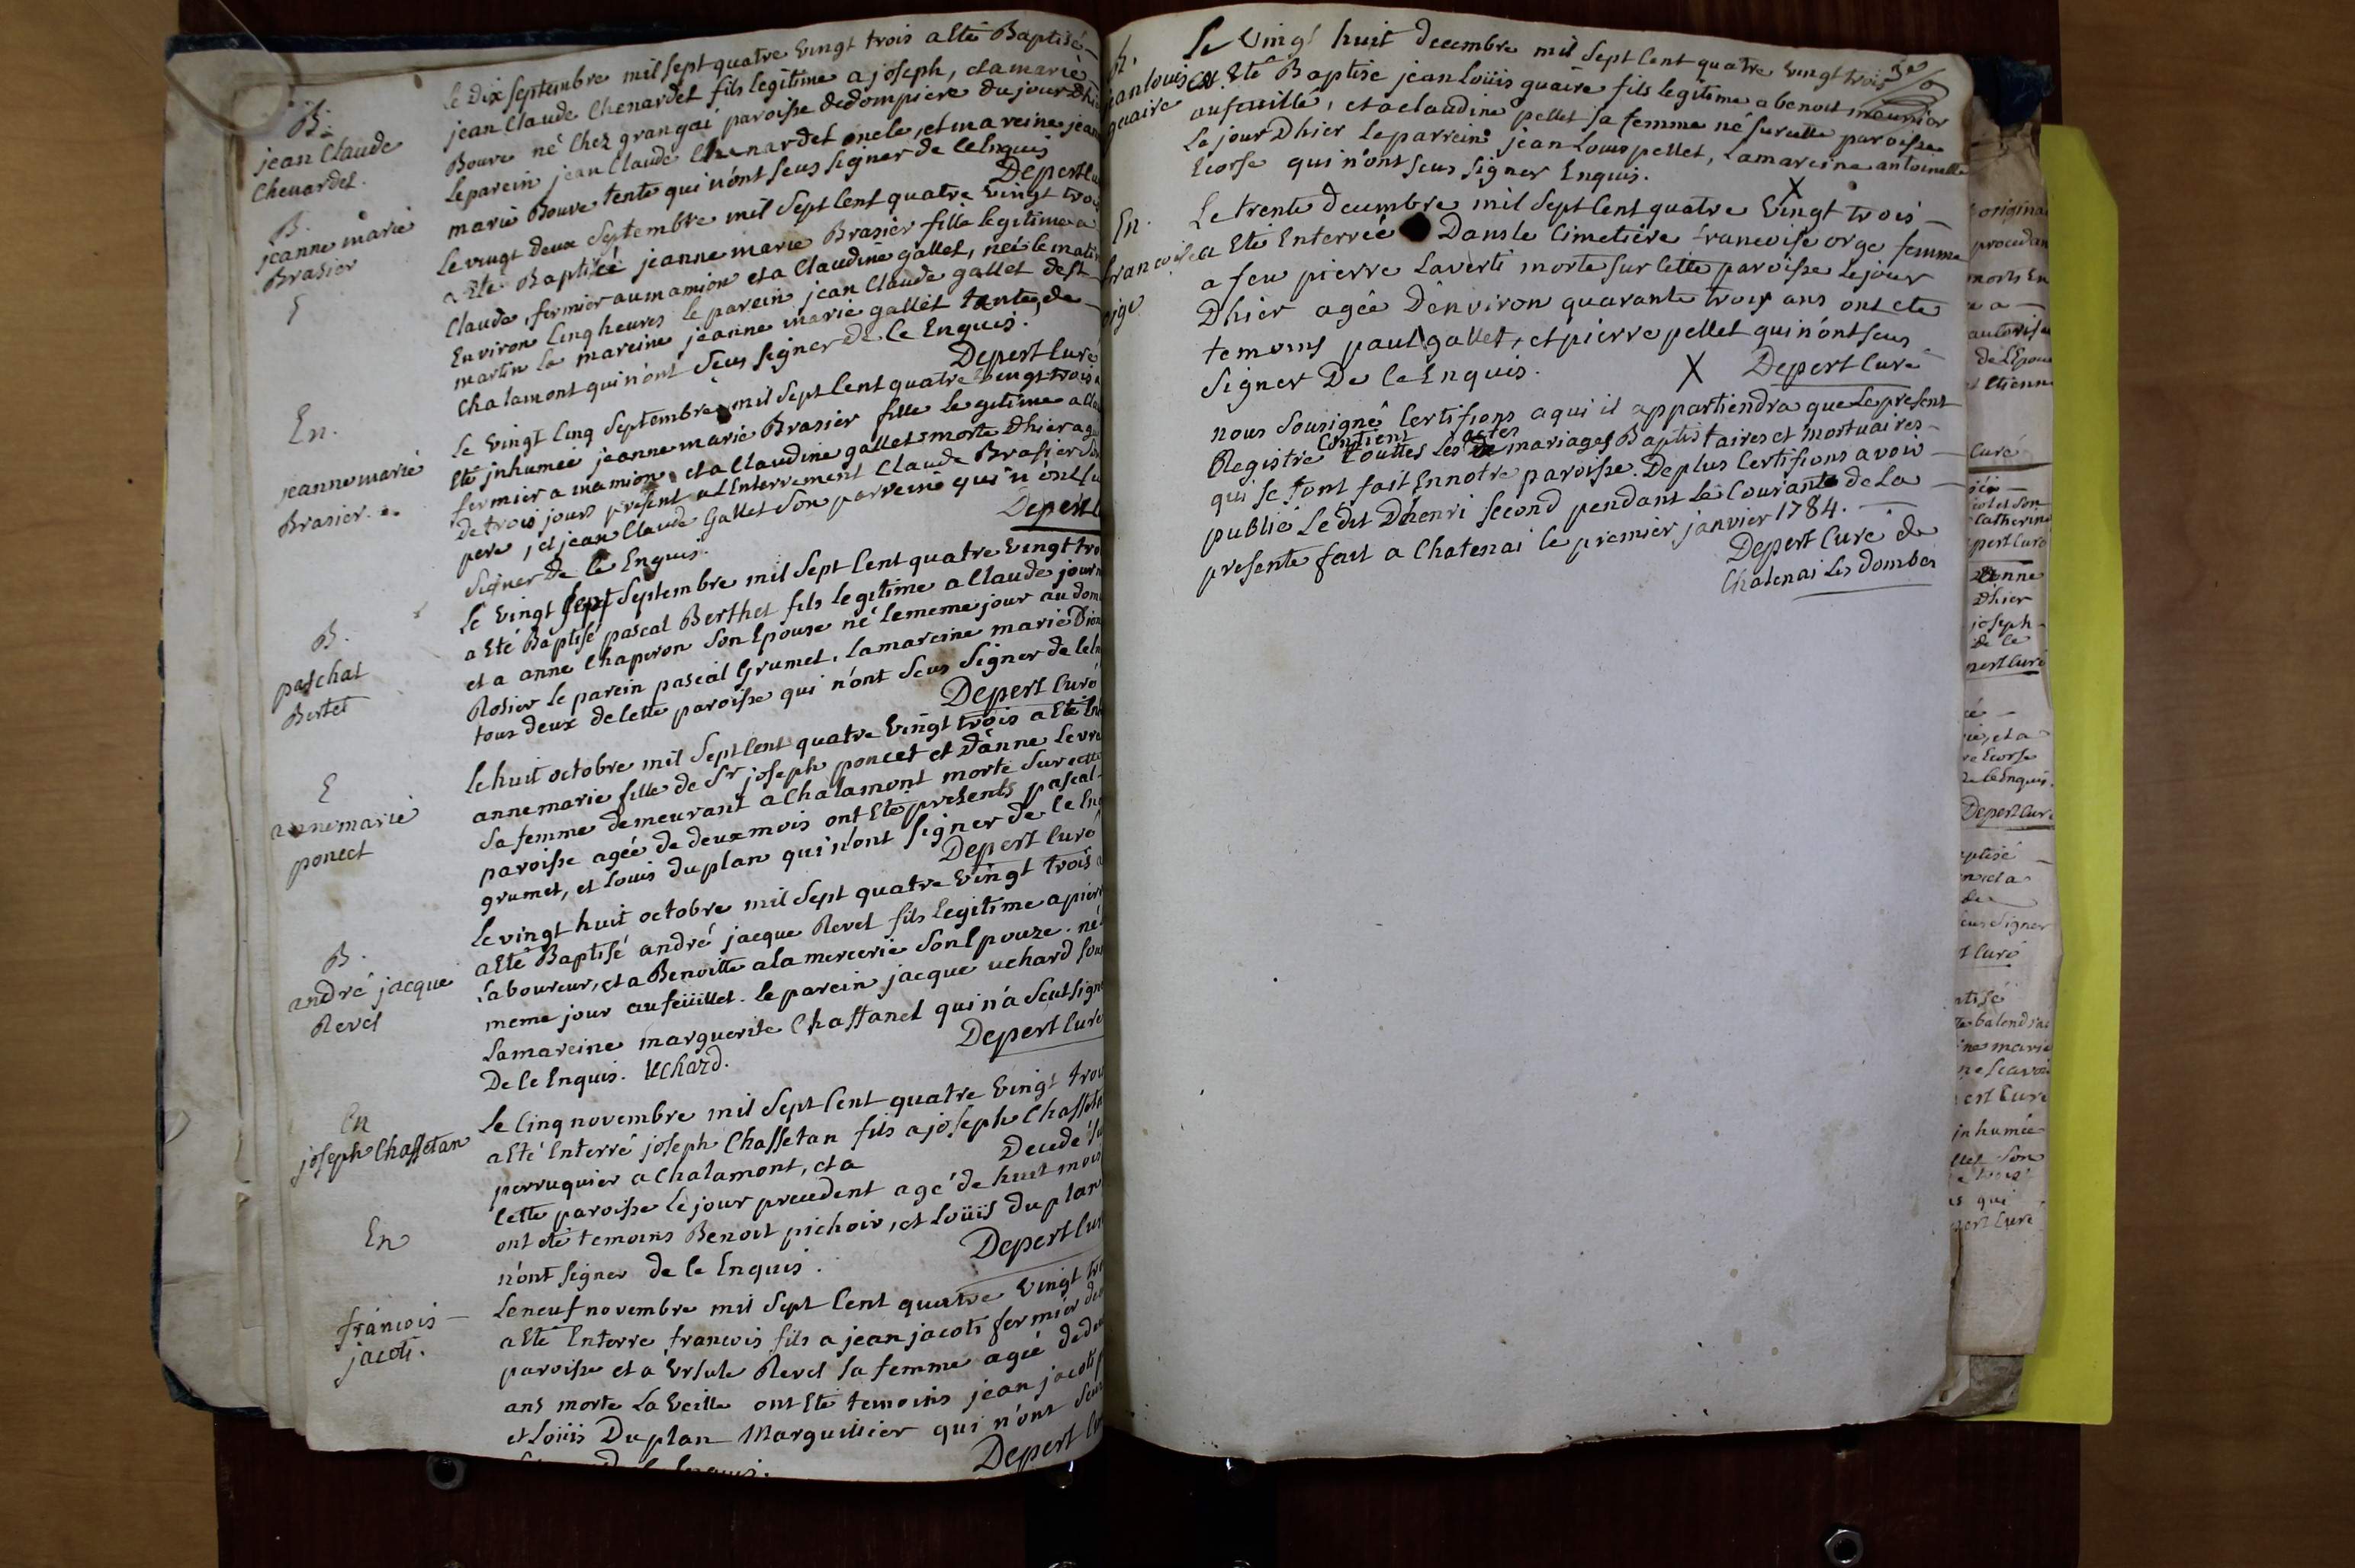 B.
jean Claude
Chenardet.
le Dix septembre mil sept quatre vingt trois a Eté Baptisé
jean Claude Chenardet fils legitime a joseph, et a marie
Bouve né Chez grangai paroisse de dompiere du jour Dhi
le parein jean Claude Chenardet oncle, et mareine jean
marie Bouve tente qui n'ont seus signer de ce Enquis
Depert Cu
B.
jeanne marie
Brasier
Le vingt deux septembre mil sept Cent quatre vingt troi
a Eté Baptisée jeanne marie Brasier fille legitime a
Claude, fermier au mamion et a Claudine gallet, née le mati
Environ Cinq heures le parein jean Claude gallet de st
martin la mareine jeanne marie gallet tante, de
Chalamont qui n'ont seus signer de Ce Enquis.
Depert Curé
En.
jeanne marie
Brasier.
Le vingt Cinq septembre mil sept Cent quatre vingt trois a
Eté jnhumée jeanne marie Brasier fille legitime a Cla
fermier a mamion et a Claudine gallet morte Dhier ag
de trois jours present a l'Enterrement Claude Brasier son
pere, et jean Claude Gallet son parrein qui n'ont
signer De Ce Enquis.
Depert C
B.
paschal
Bertet
le vingt sept septembre mil sept Cent quatre vingt tro
a Eté Baptisé pascal Berthet fils legitime a Claude jour
et a anne Chaperon son Epouse né le meme jour au dom
Rosier le parein pascal Grumet, la mareine marie Dion
tous deux de Cette paroisse qui n'ont seus signer de Ce
Depert Curé
E
anne marie
poncet
le huit octobre mil sept Cent quatre vingt trois a Eté En
anne marie fille de Sr joseph poncet et D'anne Levra
sa femme demeurant a Chalamont morte sur cette
paroisse agée de deux mois ont Eté presents pascal
grumet, et Louis duplan qui n'ont signer de Ce En
Depert Curé
B.
andré jacque
Revel
Le vingt huit octobre mil sept quatre vingt trois a
a Eté Baptisé andré jacque Revel fils legitime a pier
Laboureur, et a Benoitte a la mercerie son Epouze. né
meme jour au feüillet. le parein jacque uchard
La mareine marguerite Chaffanel qui n'a seut sign
De Ce Enquis. Uchard.
Depert Curé
En
joseph Chaffetan
Le Cinq novembre mil sept Cent quatre vingt troi
a Eté Enterré joseph Chaffetan fils a joseph Chaffeta
perruquier a Chalamont, et a Decedé
Cette paroisse le jour precedent agé de huit mois
ont été temoins Benoit pichoir, et Loüis duplan
n'ont signer de Ce Enquis.
Depert Cur
En
francois
jacoti.
Le neuf novembre mil sept Cent quatre vingt tr
a Eté Enterre francois fils a jean jacoti fermier de
paroisse et a Ursule Revel sa femme agée de de
ans morte La veille ont Eté temoins jean jacoti
et Loüis Duplan Marguillier qui n'ont seu
Depert C
B.
jean louis
guaire
3e
Le vingt huit decembre mil sept Cent quatre vingt trois
a Eté Baptise jean Loüis guaire fils legitime a benoit meunier
au feuillé, et a claudine pellet sa femme né sur cette paroisse
Le jour Dhier le parrein jean Louis pellet, La mareine antoinette
Ecorse qui n'ont seus signer Enquis.
En.
francoise
orge
Le trente decembre mil sept Cent quatre vingt trois
a Eté Enterrée Dans le Cimetiere francoise orge femme
a feu pierre Laverti morte sur Cette paroisse le jour
Dhier agée D'environ quarante trois ans ont ete
temoins paul gallet, et pierre pellet qui n'ont seus
signer De Ce Enquis.
X Depert Curé
nous sousigné Certifions a qui il appartiendra que Le present
Registre Contient touttes Les actes De mariages Baptistaires et mortuaires
qui se font fait En notre paroisse. De plus Certifions avoir
publié Le dit D'henri second pendant Le Courante de La
presente fait a Chatenai le premier janvier 1784.
Depert Curé de
Chatenai Les dombes